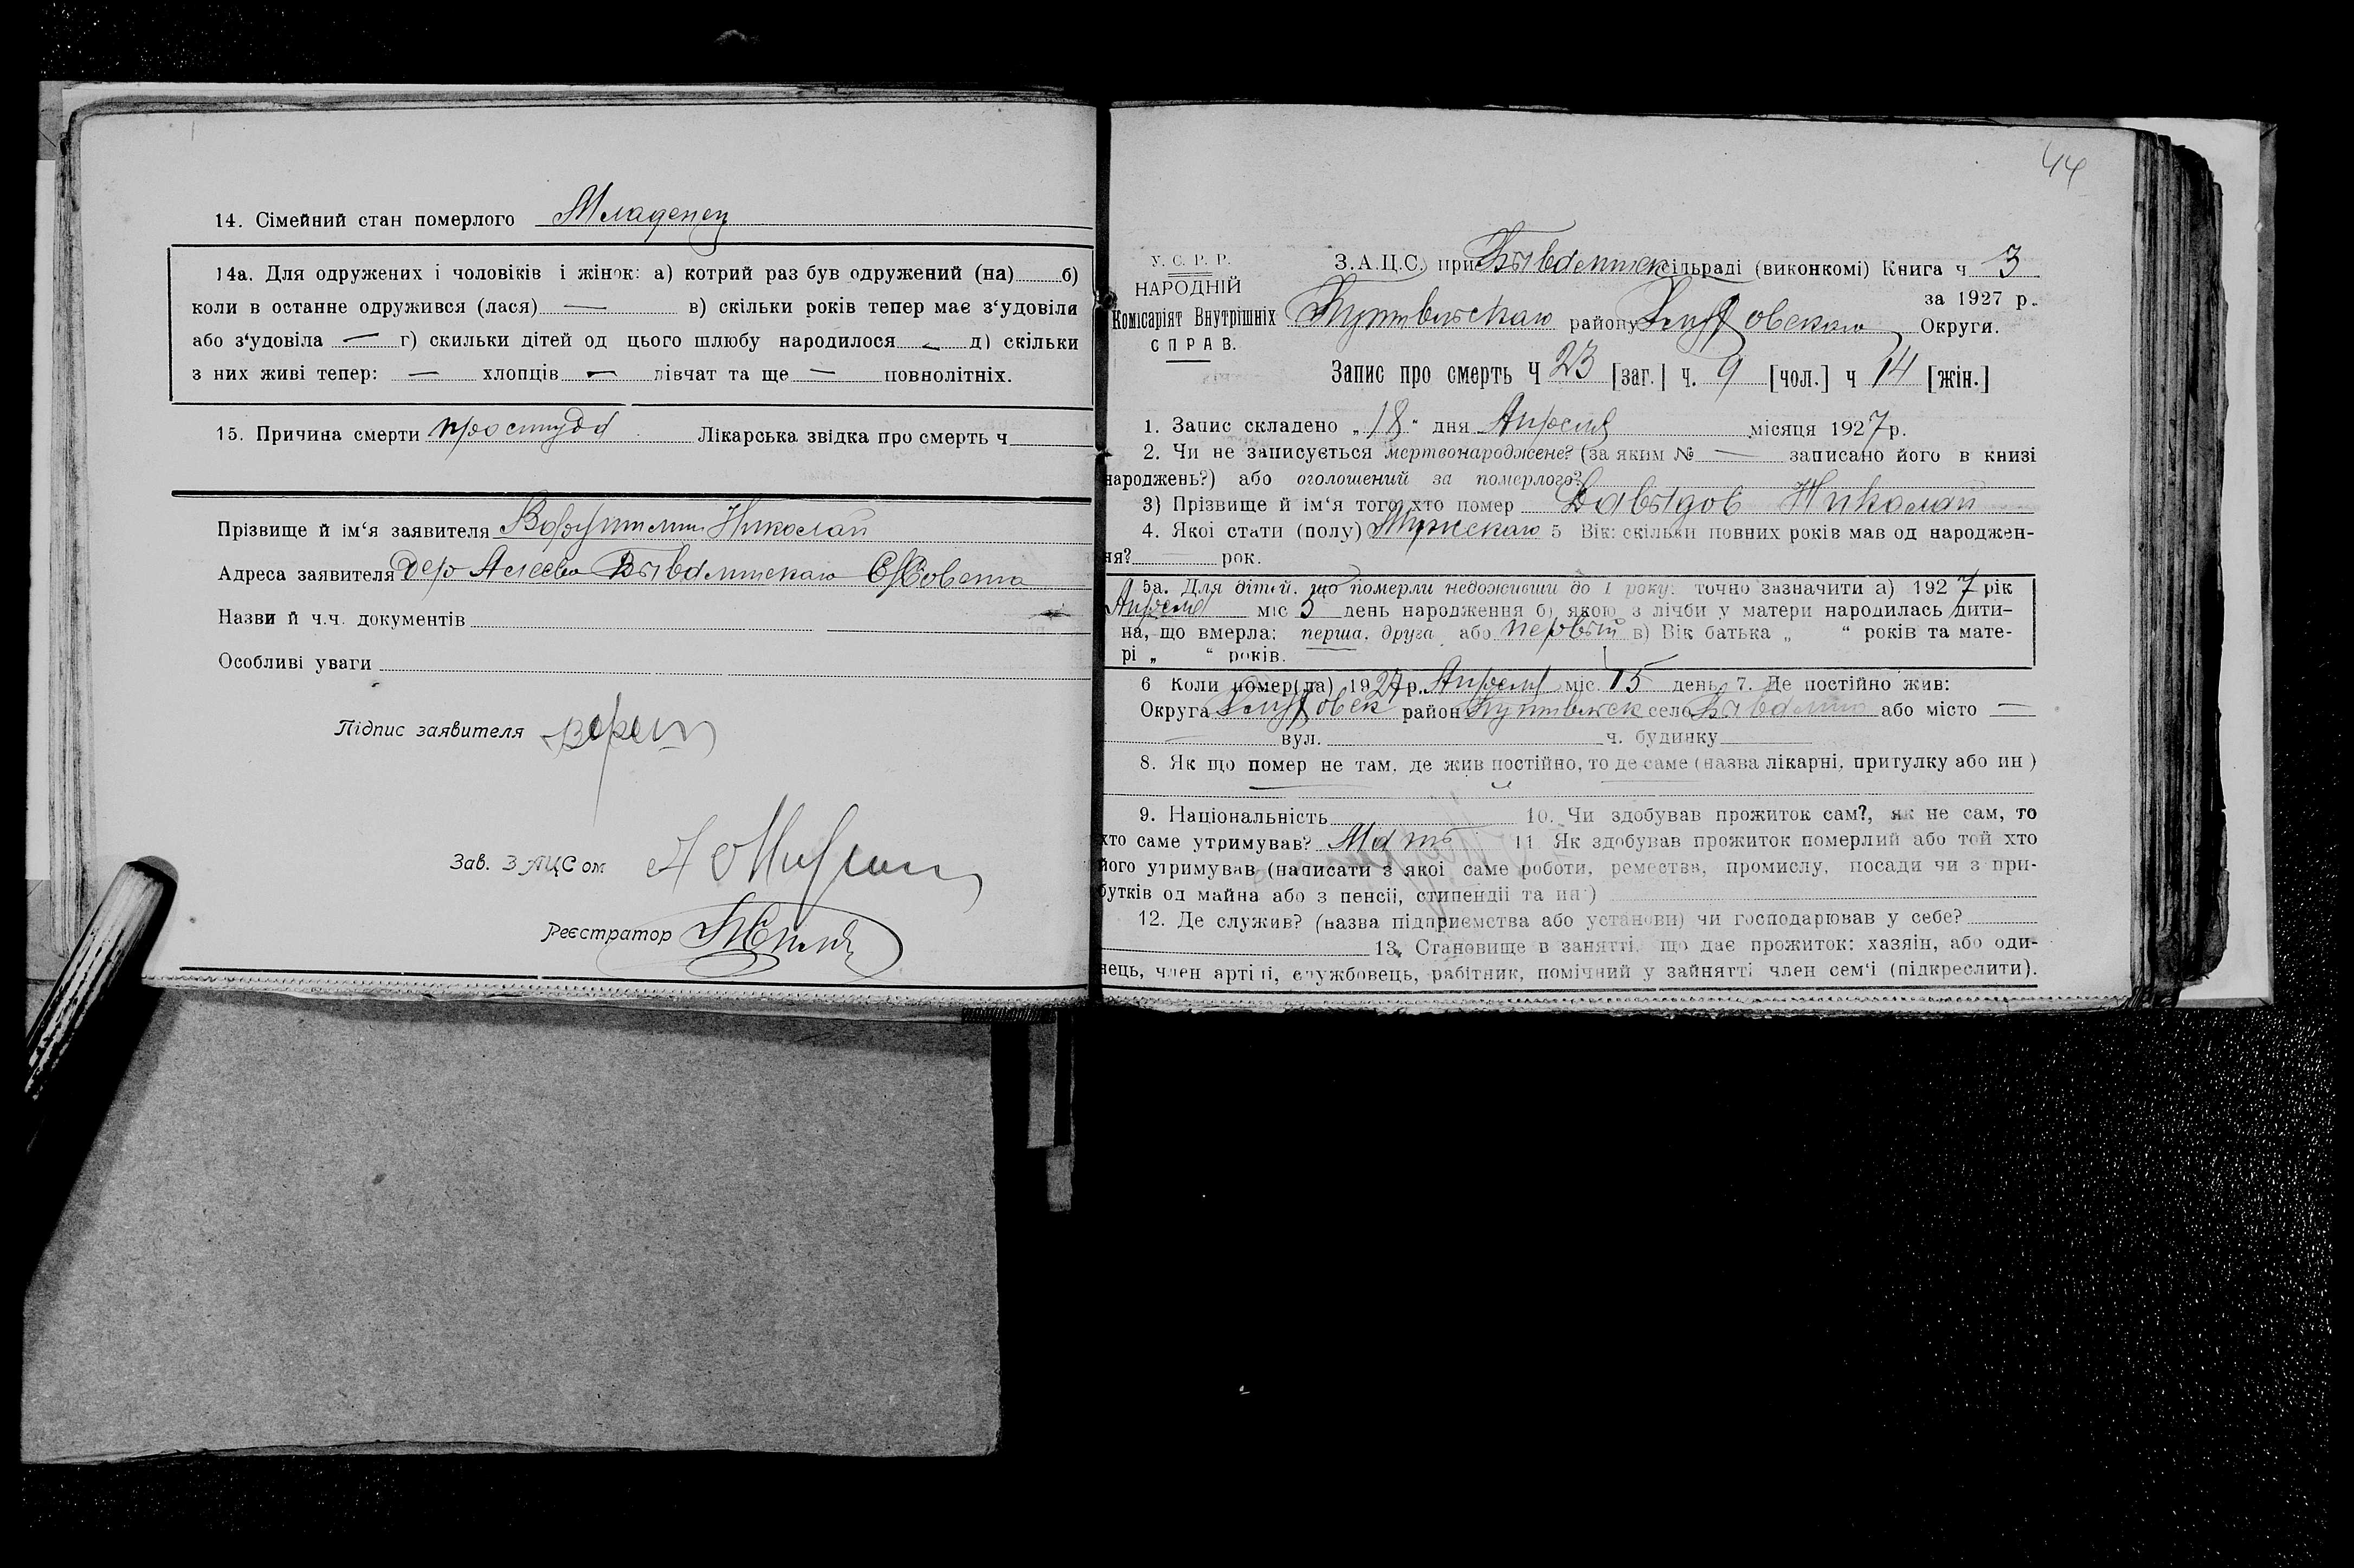 14. Сімейний стан померлого Младенец
14а. Для одружених і чоловіків і жінок: а) котрий раз був одружений (на) б)
коли в останне одружився (лася) — в) скільки років тепер має з‘удовіли
або з‘удовіла — г) скильки дітей од цього шлюбу народилося — д) скільки
з них живі тепер: — хлопців — дівчат та ще — повнолітніх.
15. Причина смерти простуда Лікарська звідка про смерть ч
Прізвище й ім‘я заявителя Николай
Адреса заявителя дер
Назви й ч.ч. документів
Особливі уваги
Підпис заявителя
Зав. ЗАЦСом
Реєстратор
44
У. С. Р. Р.
НАРОДНІЙ
Комісаріят Внутрішніх
СПРАВ.
З.А.Ц.С. при сільраді (виконкомі) Книга ч 3
за 1927 р.
району Округи.
Запис про смерть Ч 23 [заг.] ч. 9 [чол.] ч 14 [жін.]
1. Запис складено „18“ дня Апреля місяця 1927 р.
2. Чи не записується мертвонароджене? (за яким № — записано його в книзі
народжень?) або оголошений за померлого?
3) Прізвище й ім‘я того, хто помер Давыдов Николай
4. Якої стати (полу) Мужскаго 5 Вік: скільки повних років мав од народжен-
ня? — рок.
5а. Для дітей, що померли недоживши до 1 року: точно зазначити а) 1927 рік
Апреля міс 5 день народження б) якою з лічби у матери народилась дити-
на, що вмерла: перша, друга або первый в) Вік батька „ “ років та мате-
рі „ “ років.
6 Коли помер(ла) 1927 р. Апреля міс. 15 день 7. Де постійно жив:
Округа район село або місто —
вул. ч. будинку
8. Як що помер не там, де жив постійно, то де саме (назва лікарні, притулку або ин)
9. Національність 10. Чи здобував прожиток сам?, як не сам, то
хто саме утримував? Мать 11 Як здобував прожиток померлий або той хто
його утримував (написати з якої саме роботи, ремества, промислу, посади чи з при-
бутків од майна або з пенсії, стипендії та ин)
12. Де служив? (назва підприємства або установи) чи господарював у себе?
13. Становище в занятті, що дає прожиток: хазяін, або оди-
нець, член артілі, службовець, рабітник, помічний у зайнятті член сем‘і (підкреслити).